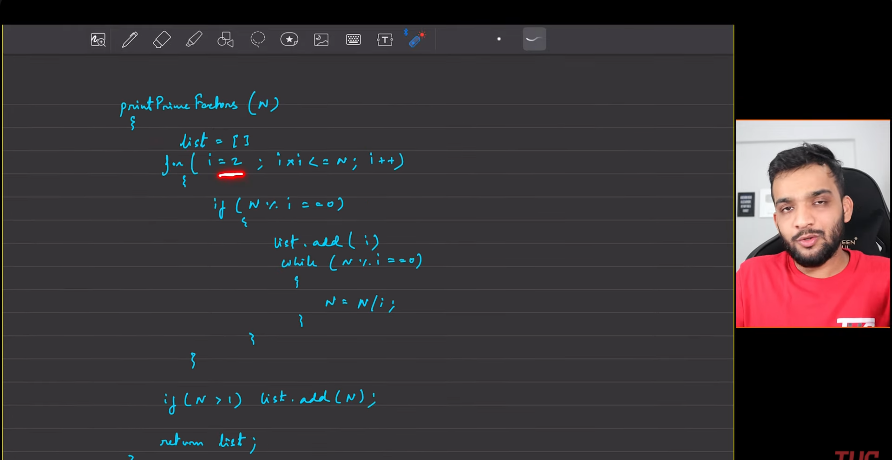 printPrimeFactors (N)
{
list = []
for ( i = 2 ; i * i <= N ; i ++ )
{
if ( N % i == 0 )
{
list.add ( i )
while ( N % i == 0 )
{
N = N / i ;
}
}
}
if ( N > 1 ) list.add ( N ) ;
return list ;
}